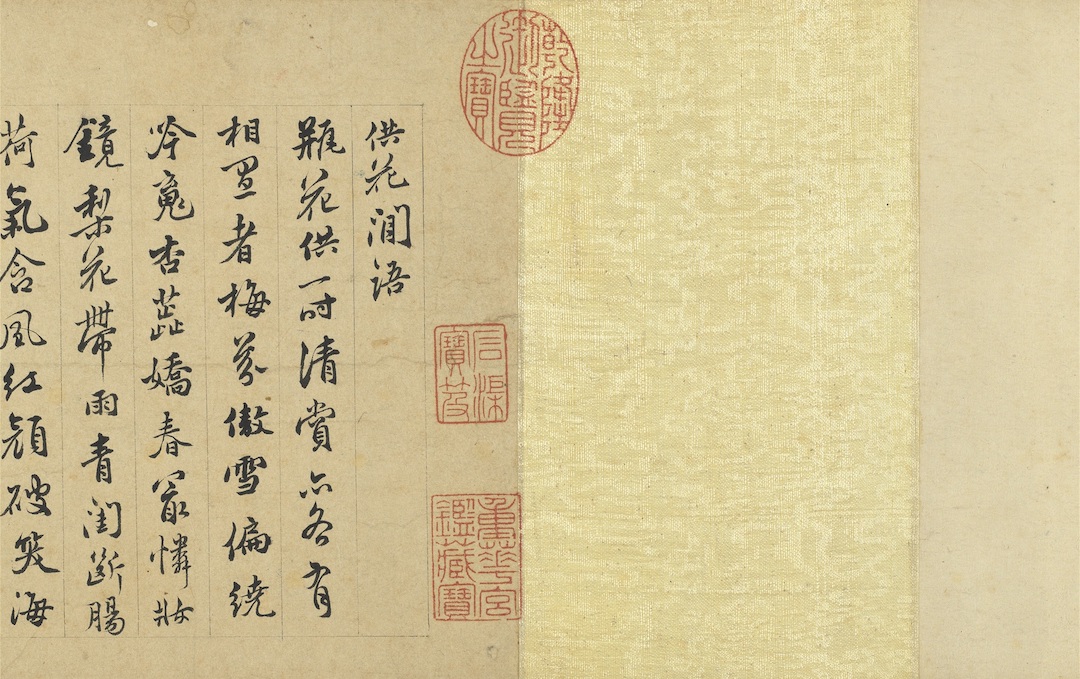 供花閒語
瓶花供一時清賞亦各有
相宜者梅芬傲雪偏繞
吟魂杏蕊嬌春最憐妝
鏡梨花帶雨青閨斷腸
荷氣含風紅顏破笑海
乾隆御覽之寶
石渠寶笈
重華宮鑑藏寶